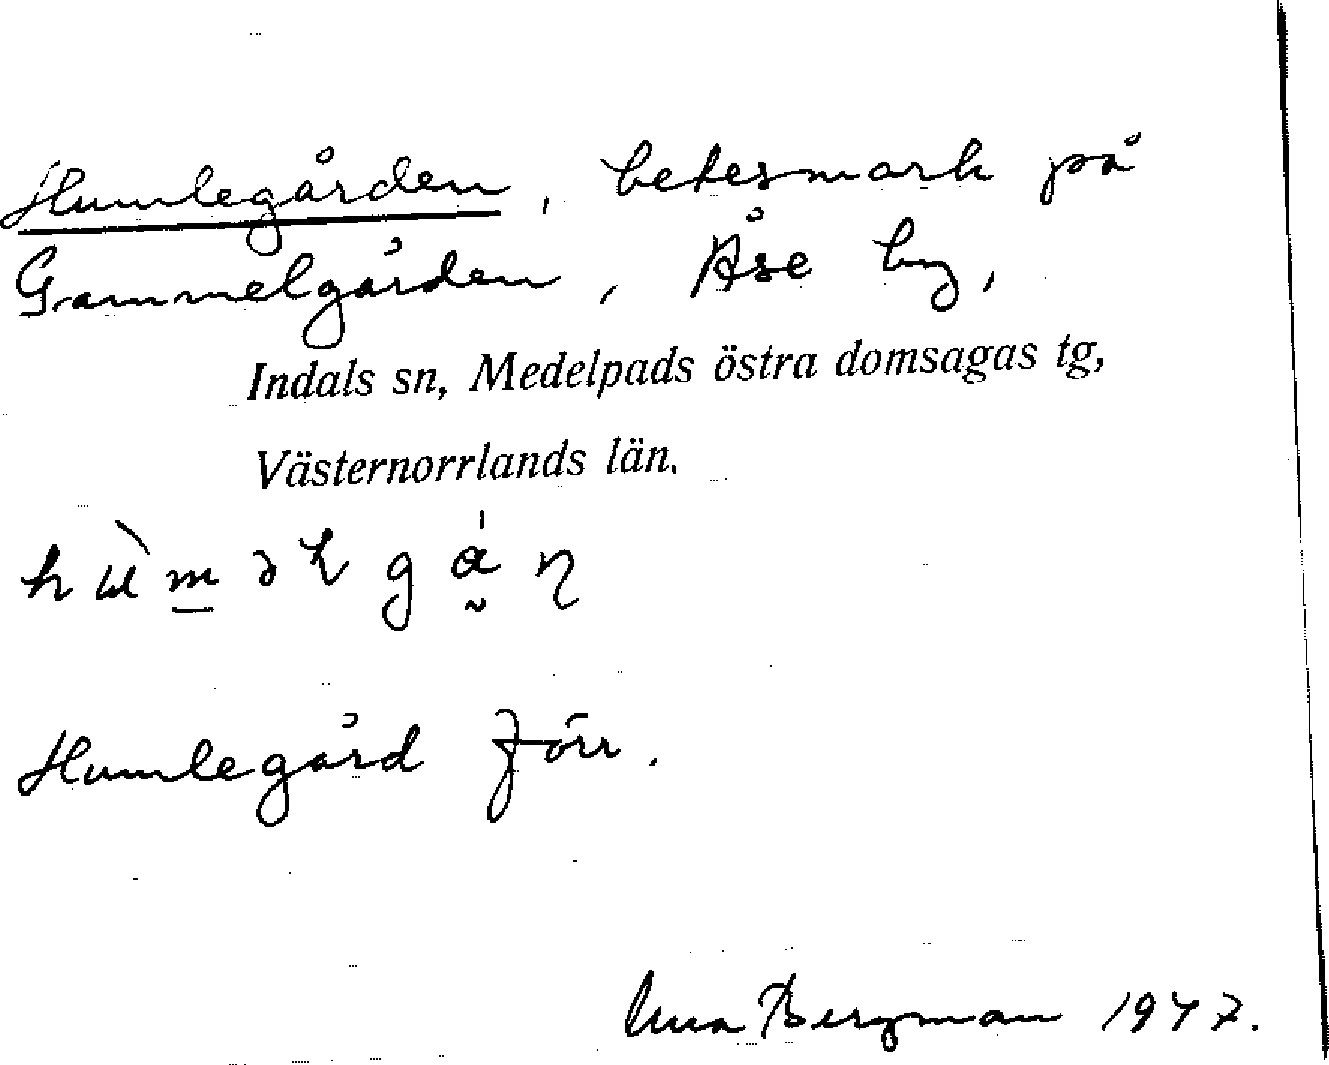 Humlegården, betesmark på
Gammelgården, Åse by,
Indals sn, Medelpads östra domsagas tg,
Västernorrlands län.
Humlegård förr.
Bergman 1947.